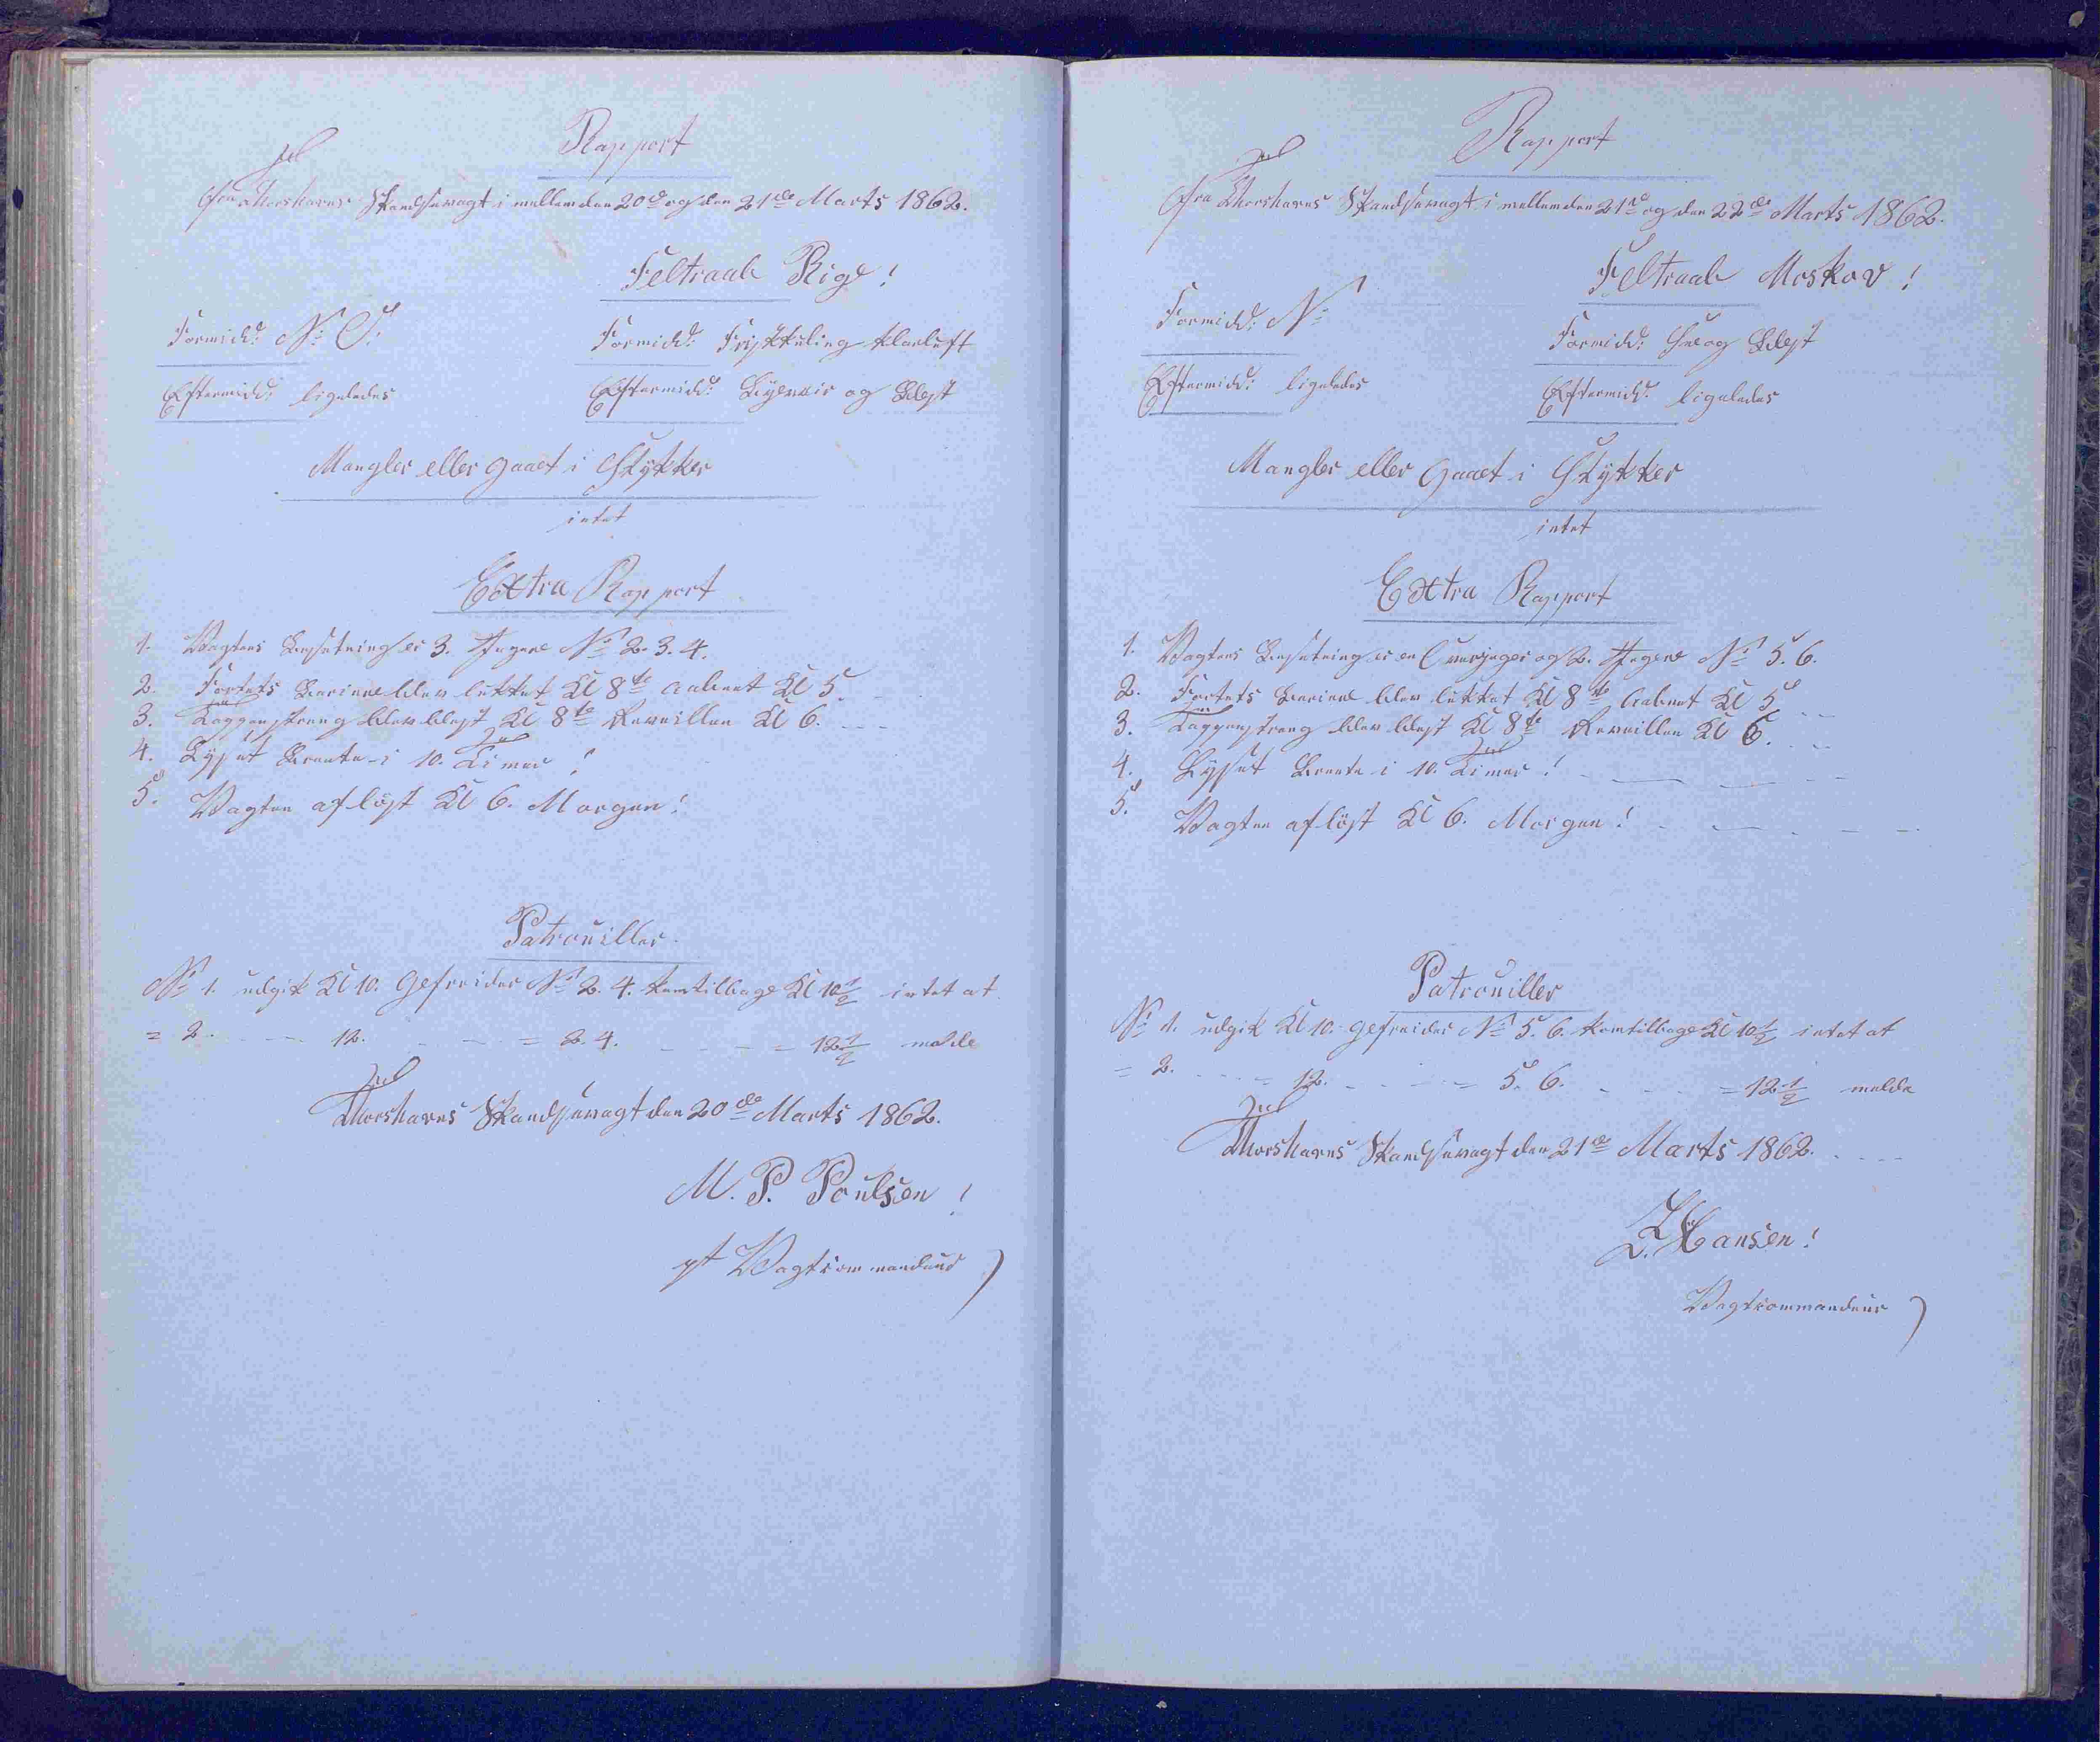 Rapport
fra Thorshavns Skandsevagt i mellem den 20de og den 21de Marts 1862.
Feltraab Rige!
Formidd: N: O.
Formidd: Frisk Kuling klarluft
Eftermidd: ligeledes
Eftermidd: Byeveir og Blæst
Mangler eller gaaet i Stykker
intet
Extra Rapport
1. Vagtens Besætning er 3. Jægere No 2. 3. 4.
2. Fortets Barriere blev lukket Kl 8te aabnet Kl 5.
3. Tappenstreng blev blæst Kl 8te Reveillen Kl 6.
4. Lyset Brente i 10. Timer!
5. Vagten afløst Kl 6. Morgen!
Patrouiller.
No 1. udgik Kl 10. Gefreider No 2. 4. kom tilbage Kl 10 1/2 intet at
= 2. - - 12. - - = 2. 4. - - = 12 1/2 melde
Thorshavns Skandsevagt den 20de Marts 1862.
M. P. Poulsen!
pt Vagtkommandeur
Rapport
fra Thorshavns Skandsevagt i mellem den 21de og den 22de Marts 1862.
Feltraab Moskov!
Formidd: N:
Formidd: Sne og Blæst
Eftermidd: ligeledes
Eftermidd: ligeledes
Mangler eller Gaaet i Stykker
intet
Extra Rapport
1. Vagtens Besætning er en Overjæger og 2. Jægere No 5. 6.
2. Fortets Barriere blev lukket Kl 8te aabnet Kl 5
3. Tappenstreng blev blæst Kl 8te Reveillen Kl 6.
4. Lyset Brente i 10. Timer!
5. Vagten afløst Kl 6. Morgen!
Patrouiller
No 1. udgik Kl 10. Gefreider No 5. 6. kom tilbage Kl 10 1/2 intet at
= 2. - - = 12. - - = 5. 6. - - = 12 1/2 melde
Thorshavns Skandsevagt den 21de Marts 1862.
Z. Hansen!
Vagtkommandeur